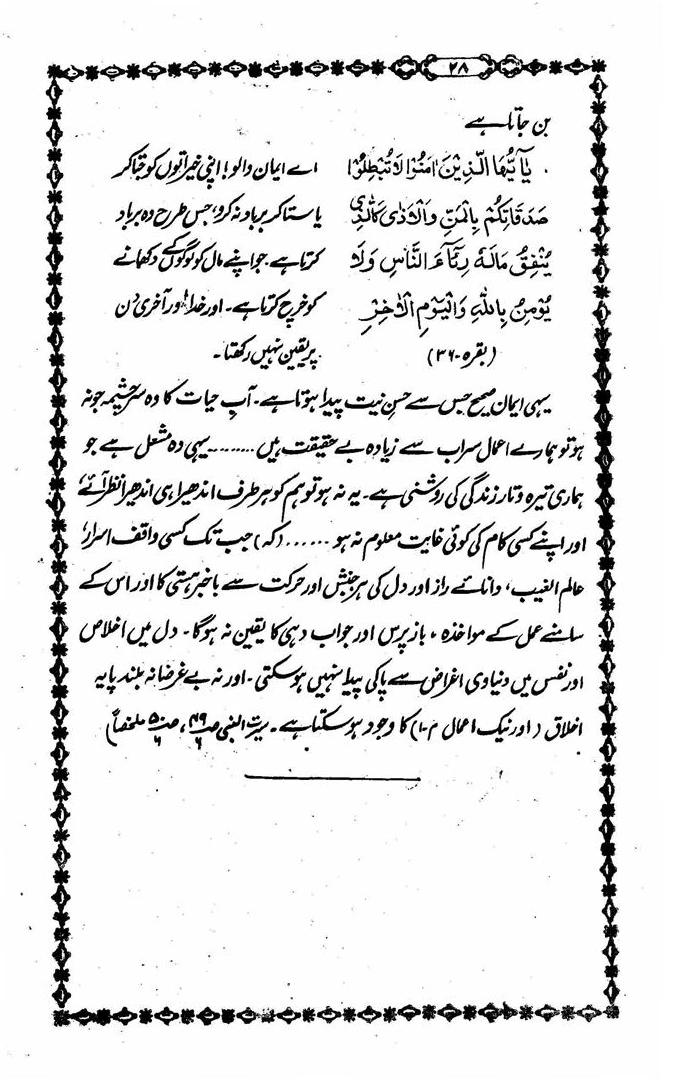 ۲۸
بن جاتا ہے
يٰۤاَيُّهَا الَّذِيْنَ اٰمَنُوْا لَا تُبْطِلُوْا
صَدَقَاتِكُمْ بِالْمَنِّ وَالْاَذٰى كَالَّذِىْ
يُنْفِقُ مَالَهٗ رِئَآءَ النَّاسِ وَلَا
يُؤْمِنُ بِاللّٰهِ وَالْيَوْمِ الْاٰخِرِ
(بقرہ-۳۶)
اے ایمان والو! اپنی خیراتوں کو جتا کر
یا ستا کر برباد نہ کرو، جس طرح وہ برباد
کرتا ہے۔ جو اپنے مال کو لوگوں کے دکھانے
کو خرچ کرتا ہے۔ اور خدا اور آخری دن
پر یقین نہیں رکھتا۔
یہی ایمان صحیح جس سے حسنِ نیت پیدا ہوتا ہے۔ آبِ حیات کا وہ سرچشمہ جو نہ
ہو تو ہمارے اعمال سراب سے زیادہ بے حقیقت ہیں ........ یہی وہ مشعل ہے جو
ہماری تیرہ و تار زندگی کی روشنی ہے۔ یہ نہ ہو تو ہم کو ہر طرف اندھیرا ہی اندھیرا نظر آئے،
اور اپنے کسی کام کی کوئی غایت معلوم نہ ہو ...... (کہ) جب تک کسی واقف اسرار،
عالم الغیب، دانائے راز اور دل کی ہر جنبش اور حرکت سے باخبر ہستی کا اور اس کے
سامنے عمل کے مواخذہ، باز پرس اور جواب دہی کا یقین نہ ہوگا۔ دل میں اخلاص
اور نفس میں دنیاوی اغراض سے پاکی پیدا نہیں ہو سکتی۔ اور نہ بے غرضانہ بلند پایہ
اخلاق (اور نیک اعمال م-۱) کا وجود ہو سکتا ہے۔ سیرت النبی ملخصاً)